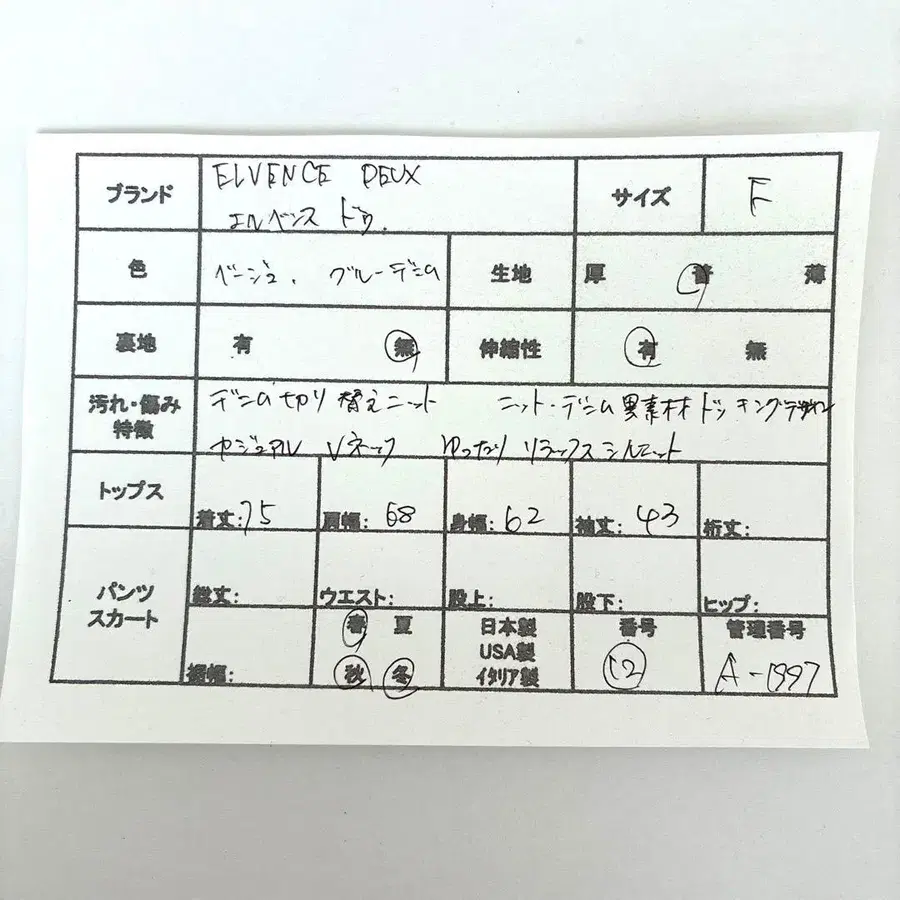 ブランド ELVENCE DEUX サイズ F
エルベンス ドゥ.
色 ベージュ、ブルーデニム 生地 厚 普 薄
裏地 有 無 伸縮性 有 無
汚れ・傷み デニム切り替えニット ニット・デニム異素材ドッキングデザイン
特徴 カジュアル Vネック ゆったりリラックスシルエット
トップス 着丈:75 肩幅:68 身幅:62 袖丈:43 裄丈:
パンツ 総丈: ウエスト: 股上: 股下: ヒップ:
スカート 春 夏 日本製 番号 管理番号
USA製
裾幅: 秋 冬 イタリア製 12 A-1997